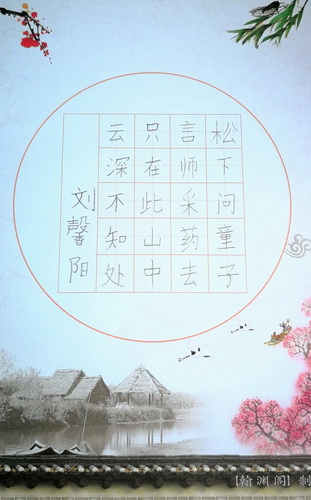 松下问童子
言师采药去
只在此山中
云深不知处
刘馨阳
【翰渊阁】制